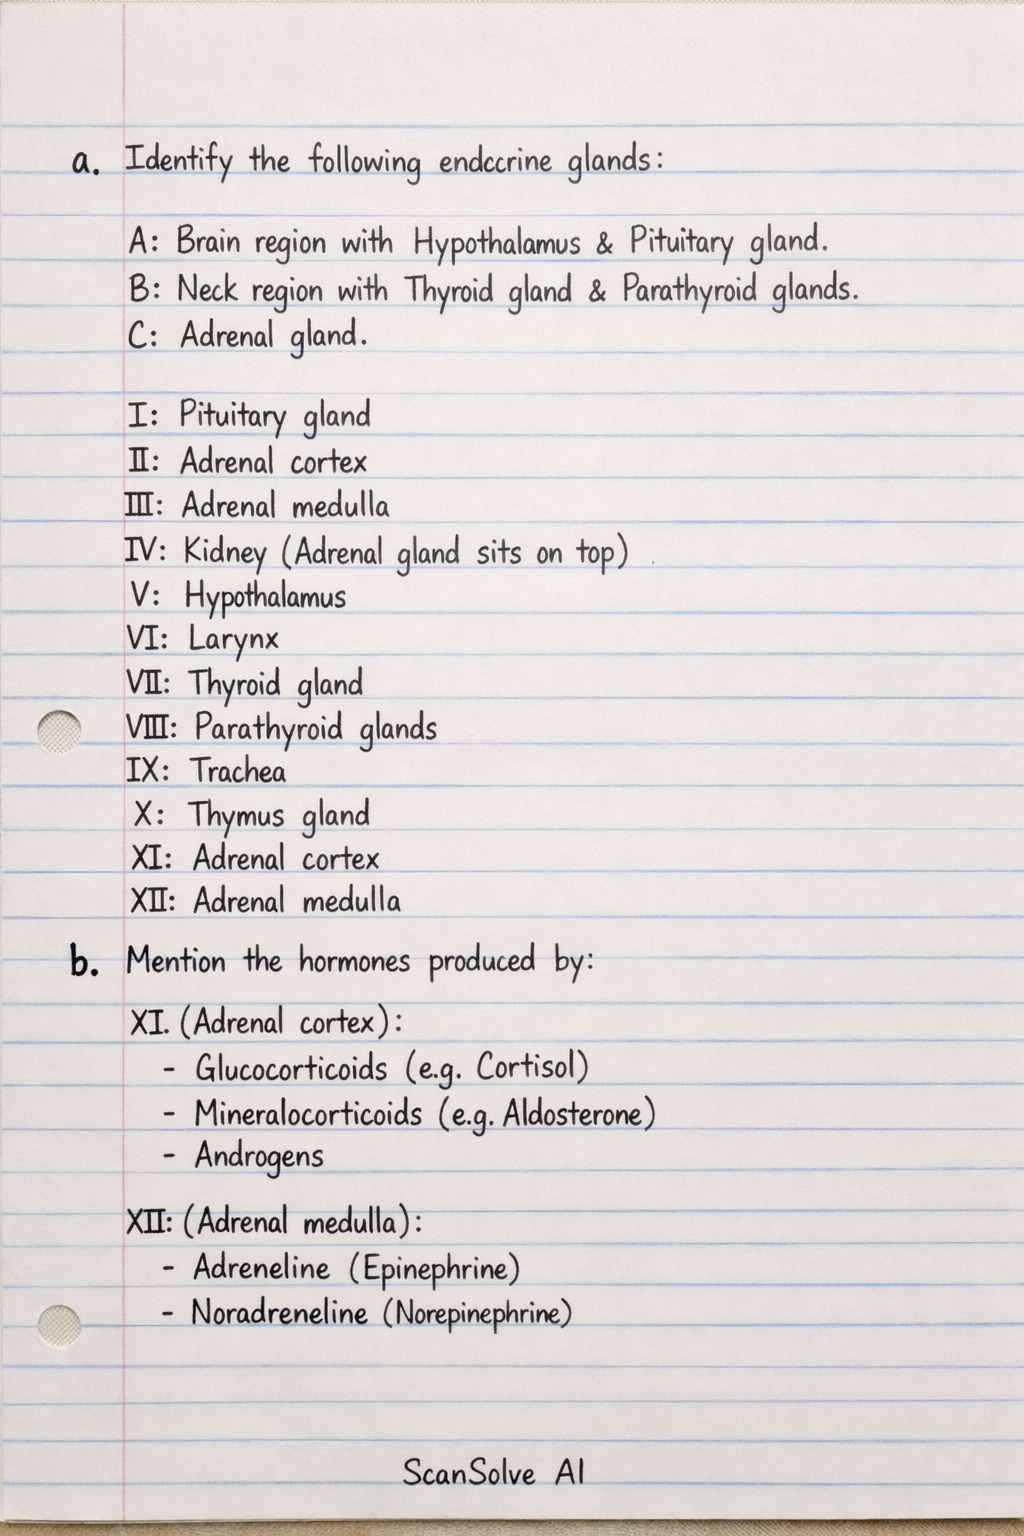 a. Identify the following endccrine glands:
A: Brain region with Hypothalamus & Pituitary gland.
B: Neck region with Thyroid gland & Parathyroid glands.
C: Adrenal gland.
I: Pituitary gland
II: Adrenal cortex
III: Adrenal medulla
IV: Kidney (Adrenal gland sits on top)
V: Hypothalamus
VI: Larynx
VII: Thyroid gland
VIII: Parathyroid glands
IX: Trachea
X: Thymus gland
XI: Adrenal cortex
XII: Adrenal medulla
b. Mention the hormones produced by:
XI. (Adrenal cortex):
- Glucocorticoids (e.g. Cortisol)
- Mineralocorticoids (e.g. Aldosterone)
- Androgens
XII: (Adrenal medulla):
- Adreneline (Epinephrine)
- Noradreneline (Norepinephrine)
ScanSolve AI